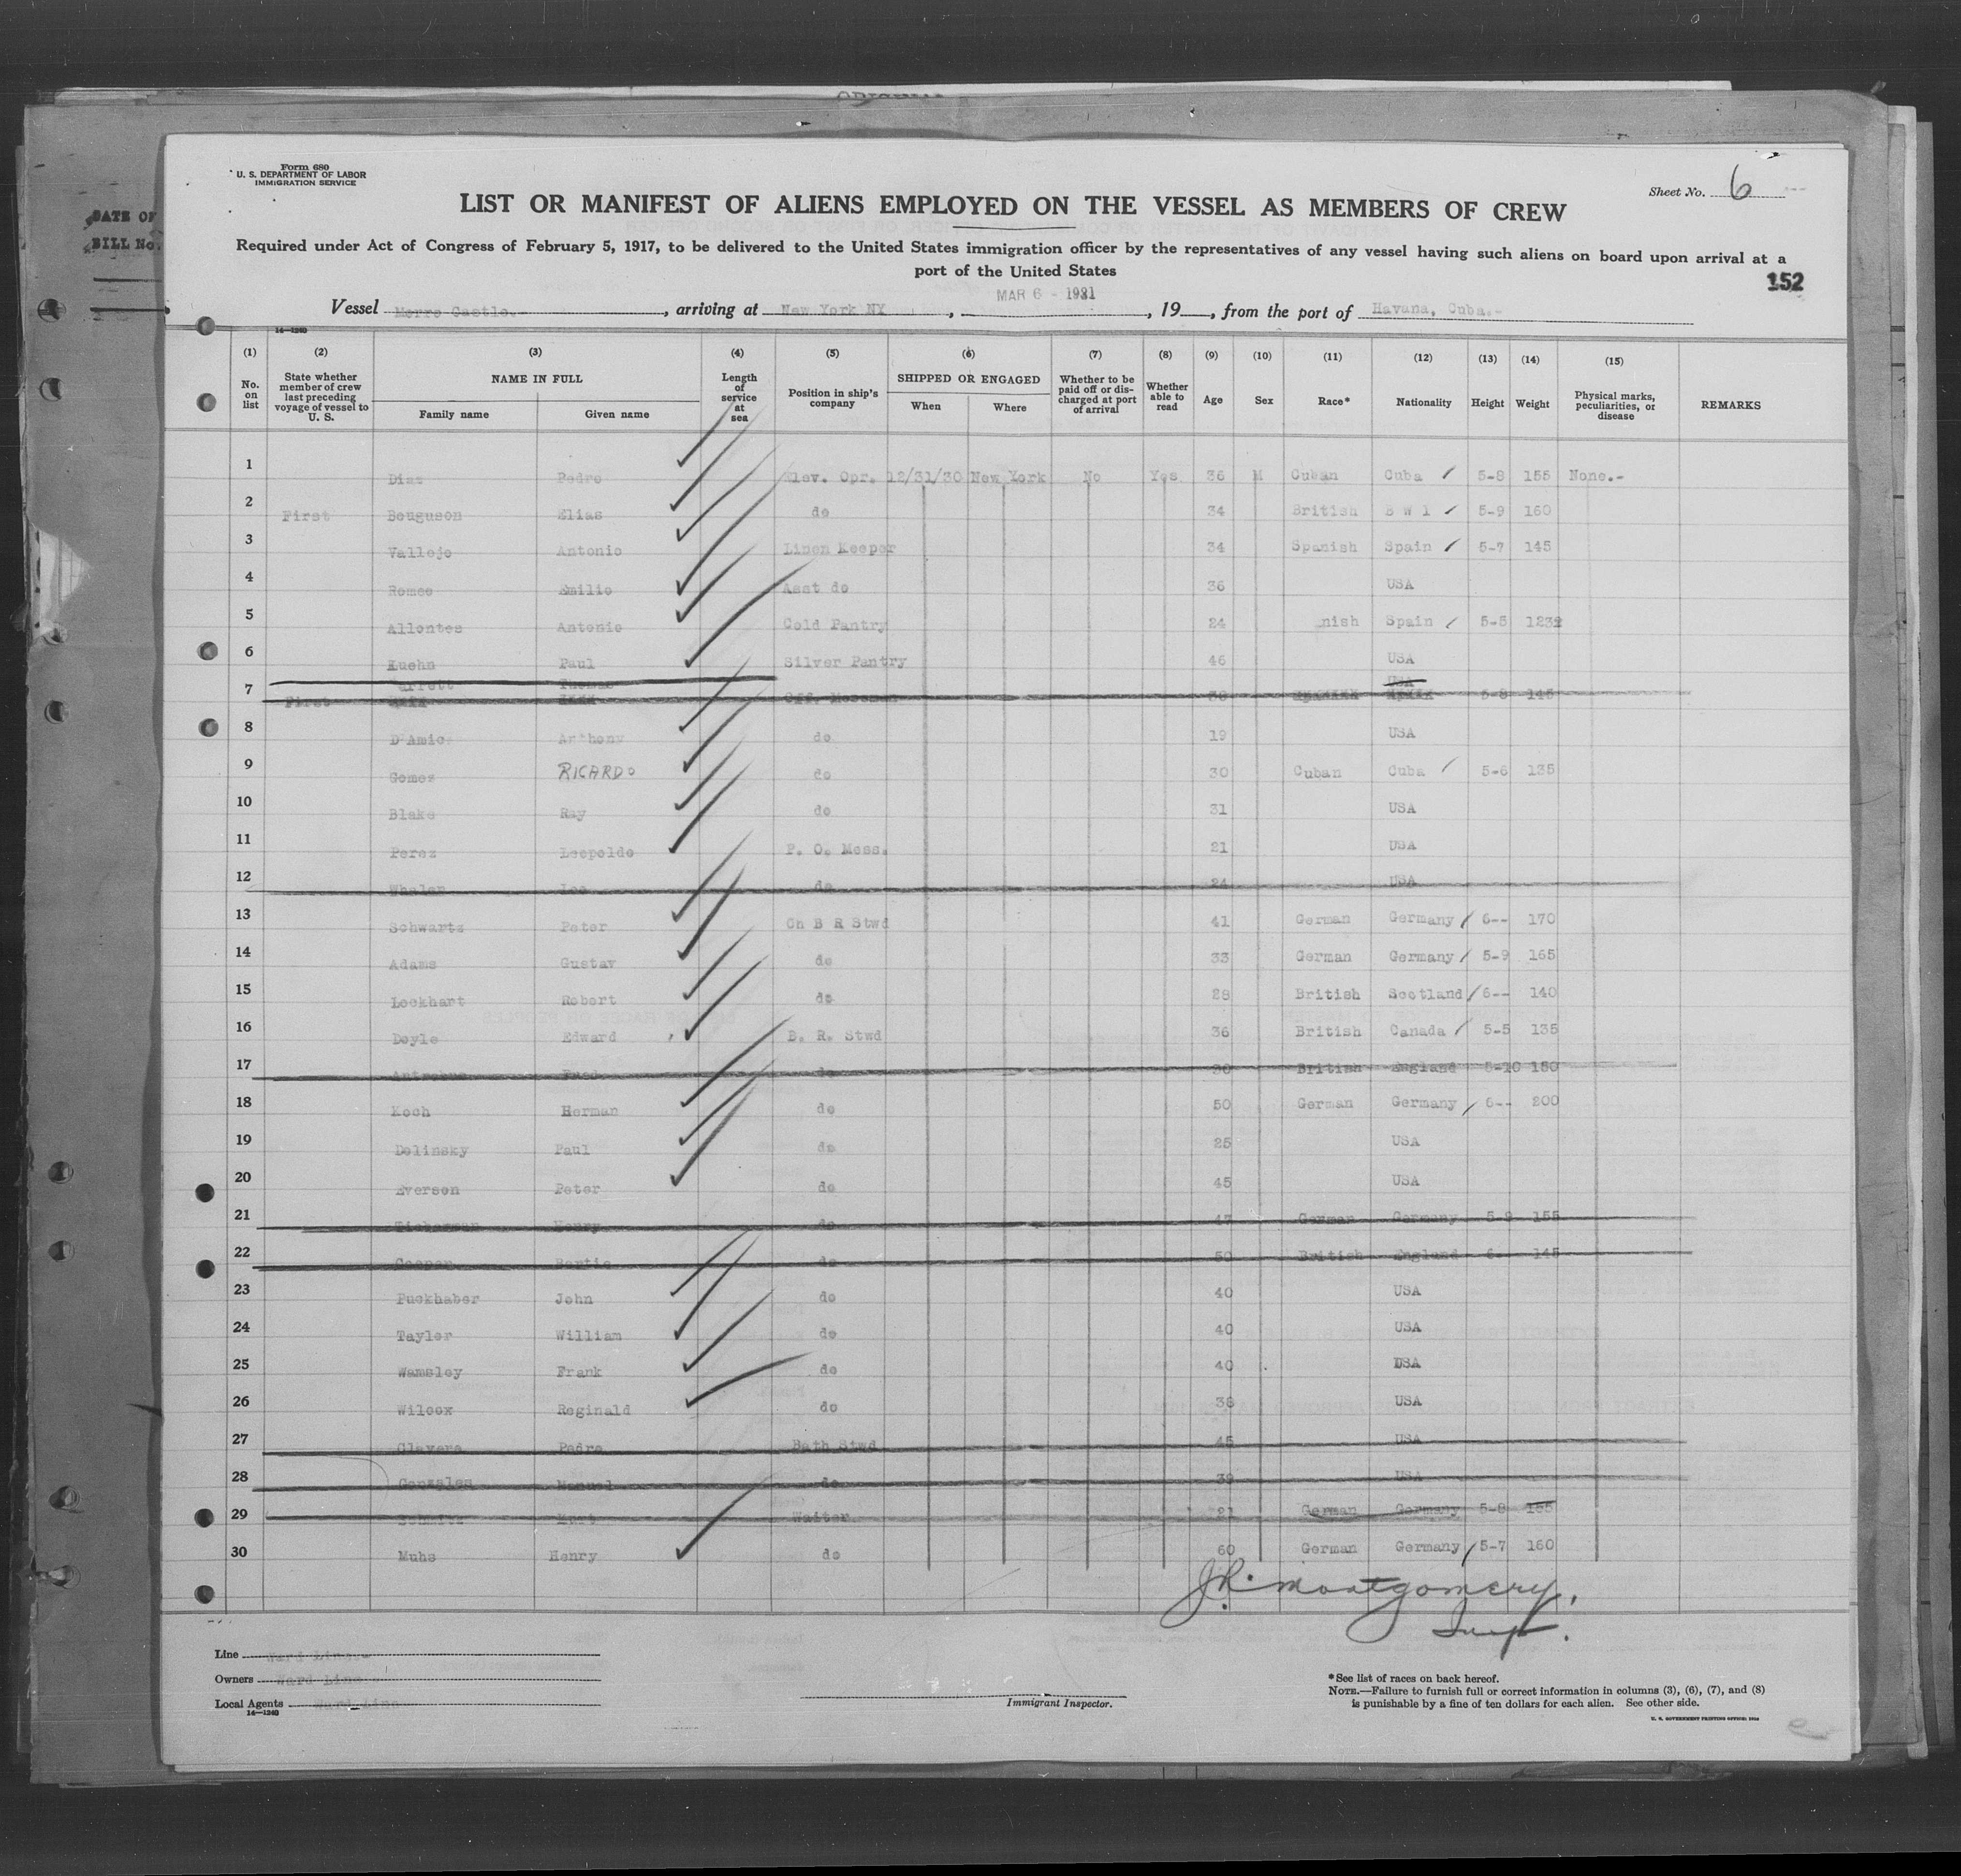 ORIGINAL
DATE OF
BILL No.
Form 680
U. S. DEPARTMENT OF LABOR
IMMIGRATION SERVICE
Sheet No. 6
LIST OR MANIFEST OF ALIENS EMPLOYED ON THE VESSEL AS MEMBERS OF CREW
Required under Act of Congress of February 5, 1917, to be delivered to the United States immigration officer by the representatives of any vessel having such aliens on board upon arrival at a
port of the United States
152
MAR 6 - 1931
Vessel Morro Castle.-, arriving at New York NY, 19, from the port of Havana, Cuba.-
14—1240
(1) (2) (3) (4) (5) (6) (7) (8) (9) (10) (11) (12) (13) (14) (15)
No. on list State whether member of crew last preceding voyage of vessel to U. S. NAME IN FULL Family name Given name Length of service at sea Position in ship's company SHIPPED OR ENGAGED When Where Whether to be paid off or discharged at port of arrival Whether able to read Age Sex Race* Nationality Height Weight Physical marks, peculiarities, or disease REMARKS
1 Diaz Pedro Elev. Opr. 12/31/30 New York No Yes 36 M Cuban Cuba 5-8 155 None.-
2 First Bouguson Elias do 34 British B W I 5-9 160
3 Vallejo Antonio Linen Keeper 34 Spanish Spain 5-7 145
4 Romeo Emilio Asst do 36 USA
5 Allontes Antonio Cold Pantry 24 nish Spain 5-5 123
6 Kuehn Paul Silver Pantry 46 USA
7 First Thomas Off. Messman 38 USA 5-8 145
8 D'Amic Anthony do 19 USA
9 Gomez RICARDO do 30 Cuban Cuba 5-6 135
10 Blake Ray do 31 USA
11 Perez Leopoldo P. O. Mess. 21 USA
12 Whalen Leo do 24 USA
13 Schwartz Peter Ch B R Stwd 41 German Germany 6-- 170
14 Adams Gustav do 33 German Germany 5-9 165
15 Lockhart Robert do 28 British Scotland 6-- 140
16 Doyle Edward B. R. Stwd 36 British Canada 5-5 135
17 Antrobus Fred do British England 5-10 150
18 Koch Herman do 50 German Germany 6-- 200
19 Dolinsky Paul do 25 USA
20 Everson Peter do 45 USA
21 Henry do 47 German Germany 5-8 155
22 Cooper Bertie do 50 British England 6-- 145
23 Puckhaber John do 40 USA
24 Tayler William do 40 USA
25 Wamsley Frank do 40 USA
26 Wilcox Reginald do 38 USA
27 Clavera Pedro Bath Stwd 45 USA
28 Gonzales Manuel do 39 USA
29 Schmitz Kurt Waiter 21 German Germany 5-8 155
30 Muhs Henry do 60 German Germany 5-7 160
J.R. Montgomery,
Insp.
Line Ward Line.-
Owners Ward Line
Local Agents Ward Line
14—1240
Immigrant Inspector.
*See list of races on back hereof.
NOTE.—Failure to furnish full or correct information in columns (3), (6), (7), and (8)
is punishable by a fine of ten dollars for each alien. See other side.